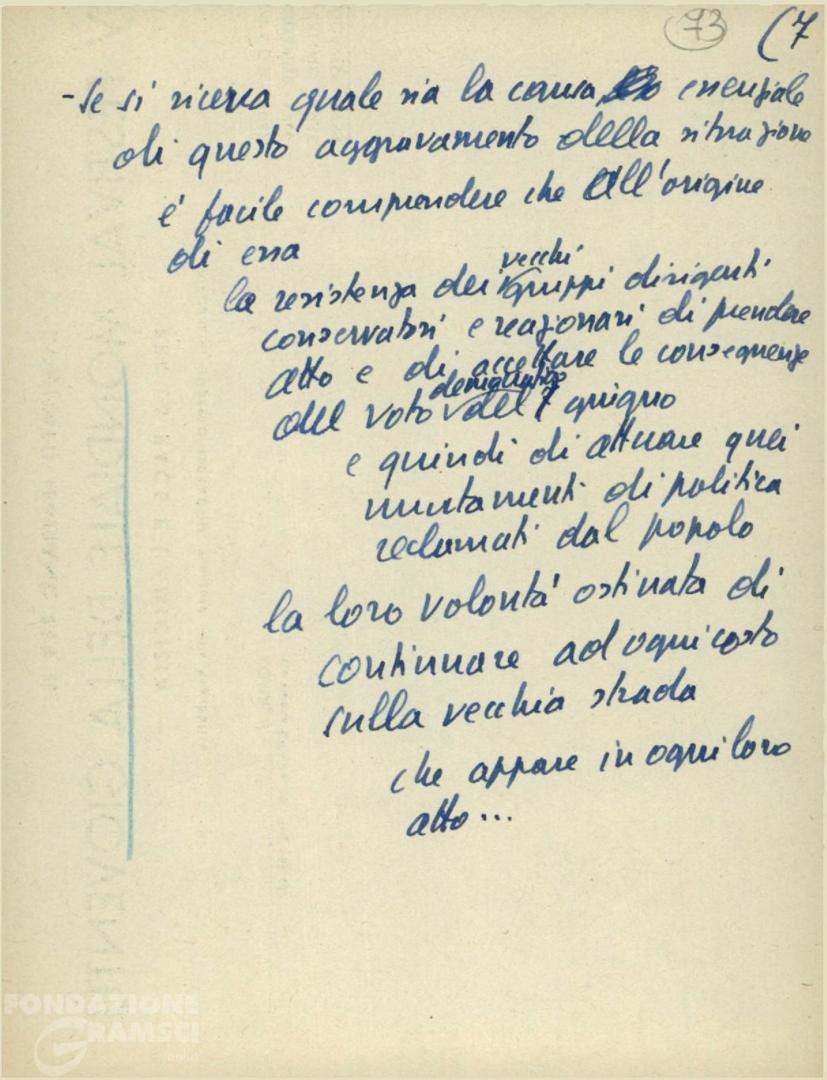 73 (7
- Se si ricerca quale sia la causa essenziale
di questo aggravamento della situazione
é facile comprendere che all'origine
di essa
la resistenza dei vecchi gruppi dirigenti
conservatori e reazionari di prendere
atto e di accettare le conseguenze
del voto democratico del 7 giugno
e quindi di attuare quei
mutamenti di politica
reclamati dal popolo
la loro volontà ostinata di
continuare ad ogni costo
sulla vecchia strada
che appare in ogni loro
atto...
FONDAZIONE
GRAMSCI